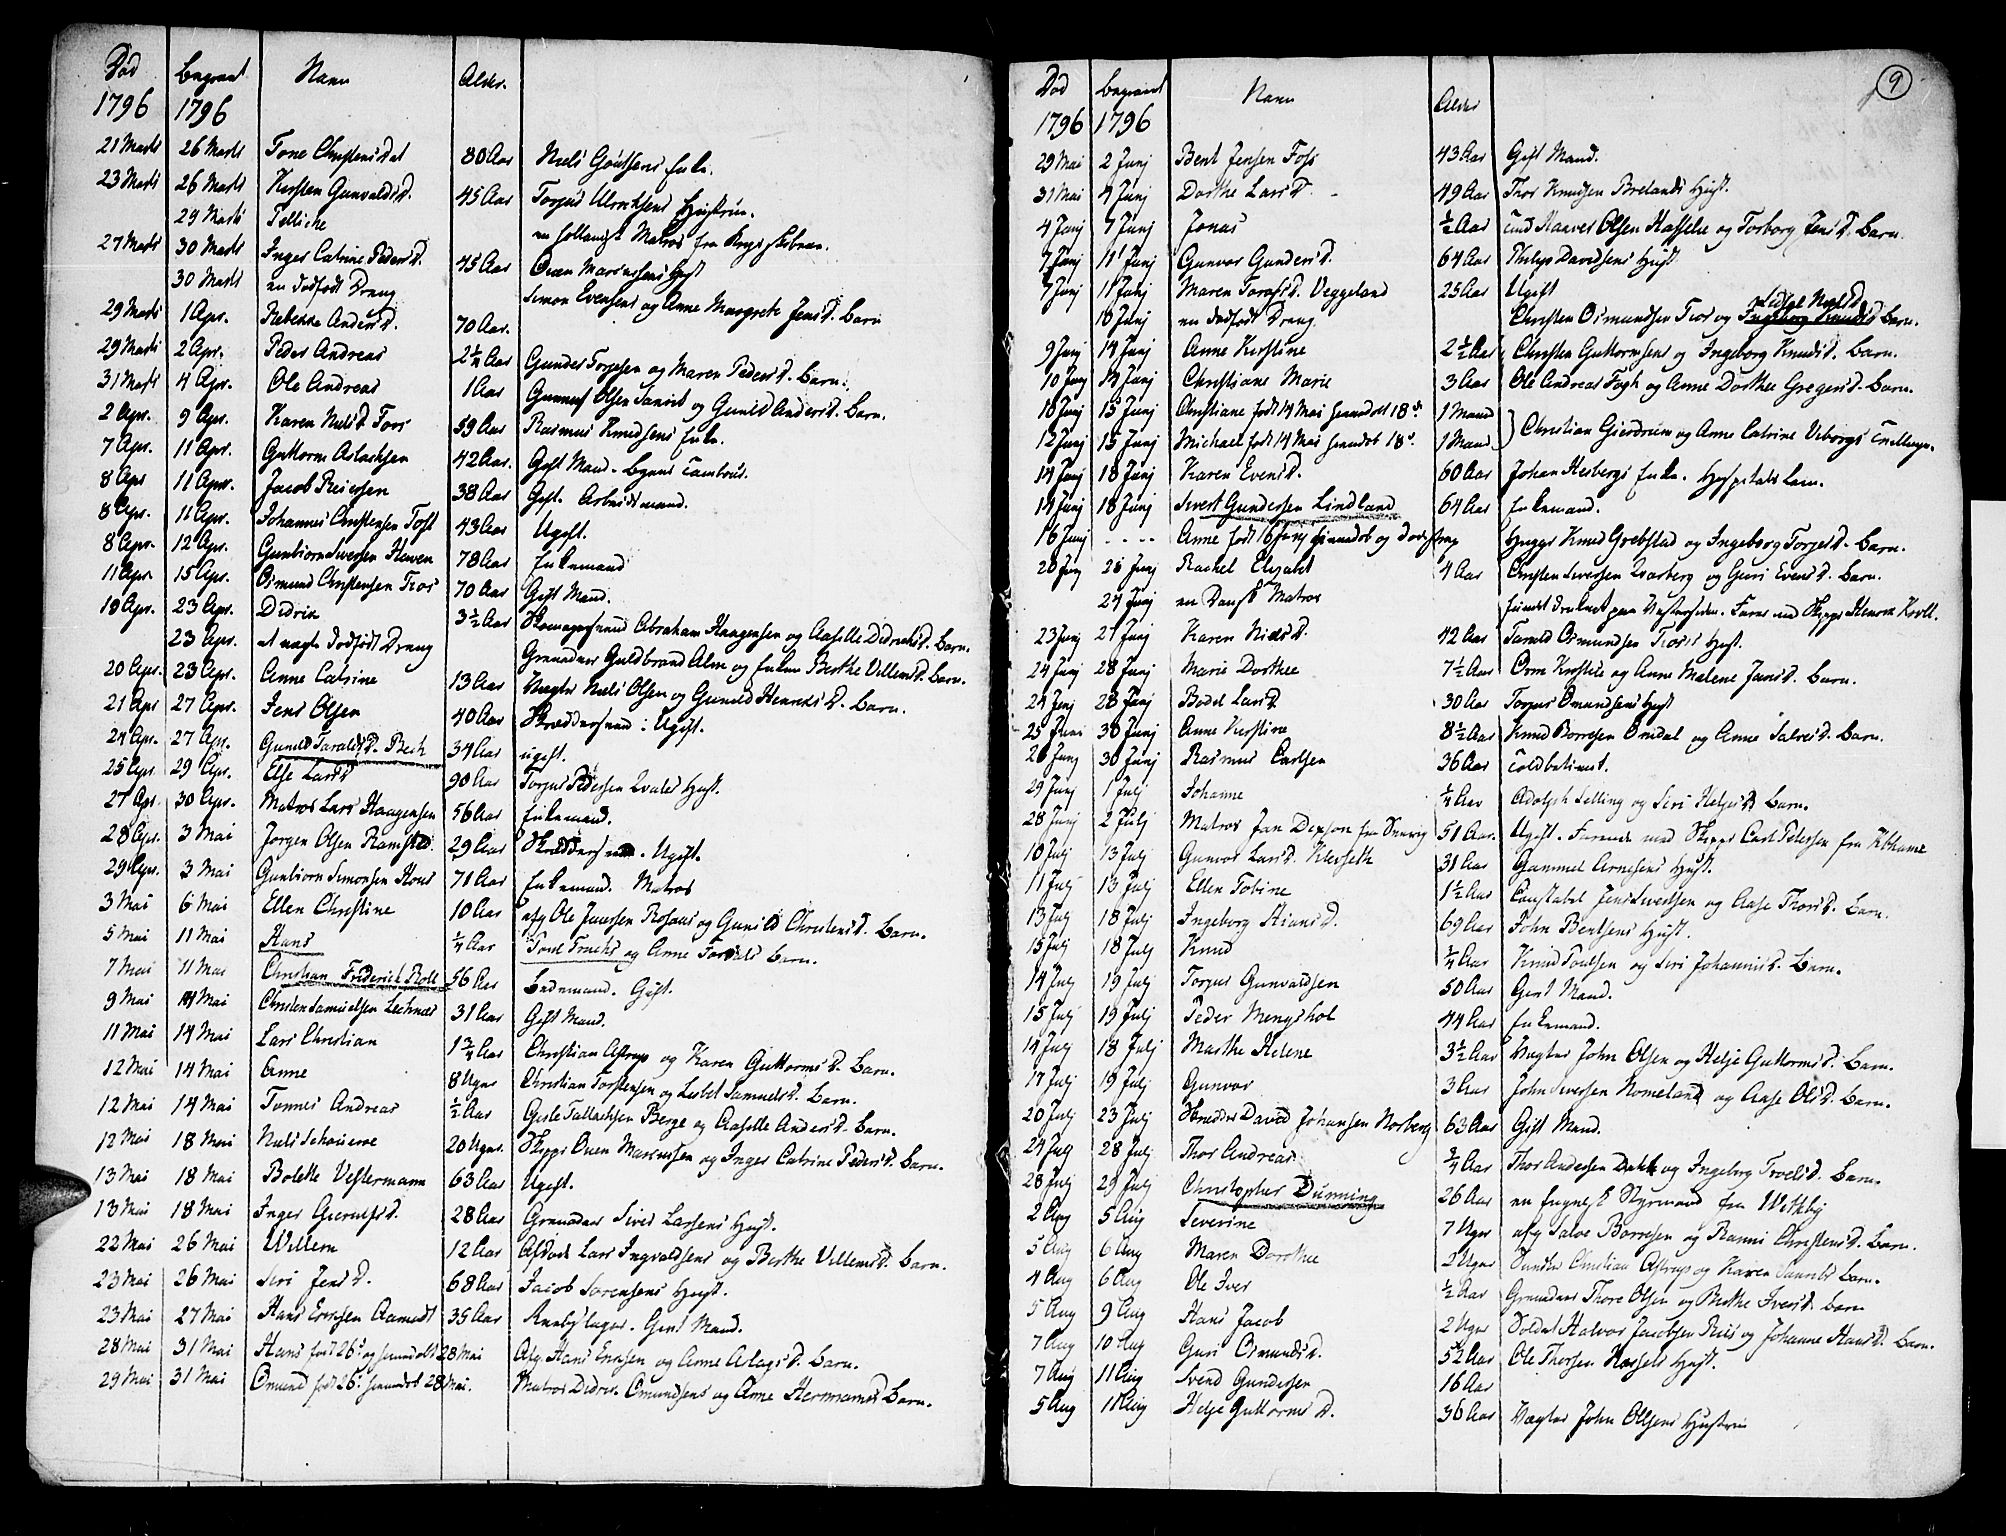 Død begravet Navn Alder.
1796 1796
21 Marts 26 Marts Tone Christensdat 80 Aar Niels Gautsens Enke.
23 Marts 26 Marts Kirsten Gunvaldsd. 45 Aar Torjus Ulrichsens Hustrue.
29 Marts en hollandsk Matros fra
27 Marts 30 Marts Inger Catrine Pedersd. 45 Aar Oven Marcussens Hust
30 Marts en dødfødt Dreng Simon Evensens og Anne Margrete Jensd. Barn
29 Marts 1 Apr. Rebekka Andersd. 70 Aar.
29 Marts 2 Apr. Peder Andreas 2 1/4 Aar Gunder Torjesen og Maren Pedersd. Barn.
31 Marts 4 Apr. Ole Andreas 1 Aar Gunnuf Olsen og Gunild Andersd. Barn.
2 Apr. 9 Apr. Karen Nielsd Foss 59 Aar Rasmus Knudsens Enke.
7 Apr. 11 Apr. Guttorm Aslachsen 42 Aar. Gift Mand. Byens Tambour.
8 Apr 11 Apr. Jacob Reiersen 38 Aar Gift. Arbeidsmand.
8 Apr. 11 Apr. Johannes Christensen Foss 43 Aar Ugift.
8 Apr. 12 Apr. Gunbiorn Sivertsen Heven 78 Aar Enkemand
11 Apr. 15 Apr. Osmund Christensen Tios 70 Aar Gift Mand.
19 Apr. 23 Apr. Didrik 3 1/2 Aar Skomagersvend Abraham Haagensen og Aaselle Didrichsd. Barn.
23 Apr. et uægte dødfødt Dreng Grenadeer Guldbrand Alm og Enken Berthe Villemsd. Barn.
20 Apr. 23 Apr. Anne Catrine 13 Aar Vægter Niels Olsen og Gunild Henrichsd. Barn.
21 Apr 27 Apr. Jens Olsen 40 Aar Skreddersvend. Ugift.
24 Apr. 27 Apr. Gunild Taraldsd. Bech 34 Aar ugift.
25 Apr. 29 Apr. Else Larsd 90 Aar Torjus Pedersen Hust.
27 Apr. 30 Apr. Matros Lars Haagensen 56 Aar Enkemand.
28 Apr. 3 Mai Jørgen Olsen Ramsted. 29 Aar Skreddersvend. Ugift.
29 Apr. 3 Mai Gunbiorn Simonsen Hous 71 Aar Enkemand. Matros
3 Mai 6 Mai Ellen Christine 10 Aar afg Ole Jenssen Rosaas og Gunild Christensd. Barn.
5 Mai 11 Mai Hans 1/4 Aar og Anne Barn.
7 Mai 11 Mai Christian Friderich Holl 56 Aar Bedemand. Gift.
9 Mai 14 Mai Christen Samuelsen 31 Aar Gift Mand.
11 Mai 14 Mai Lars Christian 1 3/4 Aar Christian Astrup og Karen Guttormsd. Barn.
12 Mai 14 Mai Anne 8 Uger Christian Torstensen og Lisbet Samuelsd. Barn.
12 Mai 14 Mai Tønnes Andreas 1/2 Aar Gisle Tallachsen Berge og Aaselle Andersd. Barn.
12 Mai 18 Mai Niels 20 Uger. Skipp Oven Marcussen og Inger Catrine Pedersd. Barn.
13 Mai 18 Mai Bolette Vestermann 63 Aar Ugift.
13 Mai 18 Mai Inger Gierulfsd. 28 Aar Grenadeer Siver Larsens Hust.
22 Mai 26 Mai Willem 12 Aar Afdøde Lars Ingvaldsens og Berthe Villemsd. Barn.
23 Mai 26 Mai Siri Jensd. 68 Aar Jacob Sørensens Hust.
23 Mai 27 Mai Hans Ericsen Aamodt 35 Aar Gift Mand.
28 Mai 31 Mai Hans født 26. og hjemdøbt 28 Mai Afg. Hans Ericsen og Anne Aslagsd. Barn.
29 Mai 31 Mai Omund født 26. hjemdøbt 28 Mai. Matros Didric Omundsens og Anne Hermansd Barn.
9
Død begravet Navn Alder
1796 1796
29 Mai 2 Junj Bent Jensen Foss 43 Aar Gift Mand.
31 Mai 4 Junj Dorthe Larsd. 49 Aar Thor Knudsen Brelands Hust.
4 Junj 7 Junj Jonas 1/2 Aar Haaver Olsen og Torborg Jensd. Barn.
7 Junj 11 Junj Gunvor Gundersd. 64 Aar Philip Davidsens Hust
7 Junj 11 Junj Maren Tarafsd. Veggeland 25 Aar Ugift
18 Junj en dødfødt Dreng Christen Osmundsen Tios og Ingeborg Knudsd Barn.
9 Junj 14 Junj Anne Kirstine 2 1/2 Aar Christen Guttormsens og Ingeborg Knudsd. Barn.
10 Junj 14 Junj Christiane Marie 3 Aar Ole Andreas Fogh og Anne Dorthea Gregersd. Barn.
10 Junj 15 Junj Christiane født 14 Mai hjemdøbt 18. 1 Maaned
12 Junj 15 Junj Michael født 14 Mai hjemdøbt 18. 1 Maaned } Christian Gierdrum og Anne Catrine Viborgs Tvillinger.
14 Junj 18 Junj Karen Evensd. 60 Aar Johan Hesbergs Enke. Hospitals Lem.
14 Junj 18 Junj Sivert Gundersen Lindland 64 Aar Enkemand.
16 Junj - - - - Anne født 16 Junj hjemdøb og død strax Hugg Knud Grebstad og Ingeborg Torjesd. Barn.
20 Junj 26 Junj Rachel Elisabet 4 Aar Christen Sivertsen og Guri Evensd. Barn.
24 Junj en Dansk Matros fundet druknet paa Vestersiden. Farne med Skipp Henrik
23 Junj 27 Junj Karen Nielsd. 42 Aar Tarald Osmundsen Tioss Hust.
24 Junj 28 Junj Marie Dorthea 7 1/2 Aar Orm og Anne Malene Jensd. Barn.
24 Junj 28 Junj Bodel Larsd 30 Aar Torjus Omundsens Hust
25 Juni 30 Junj Anne Kirstine 8 1/2 Aar Knud Borresen Omdal og Anne Salvesd. Barn.
26 Junj 30 Junj Rasmus Carlsen 36 Aar Toldbetient.
29 Junj 1 Julj Johanne 1/4 Aar Adolph Selling og Siri Helgesd Barn.
28 Junj 2 Julj Matros Jan fra 51 Aar. Ugift. Farende med Skipp Carl Petersen fra Kbhavn
10 Julj 13 Julj Gunvor Larsd. Klepseth 31 Aar Gammel Arnesens Hust.
11 Julj 13 Julj Ellen Tobine 1 1/2 Aar Constabel Jens Sivertsen og Aase Thorsd. Barn.
13 Julj 18 Julj Ingeborg Stiansd. 69 Aar John Bentsens Hust.
15 Julj 18 Julj Knud 1/4 Aar Knud Poulsen og Siri Johannisd. Barn.
14 Julj 19 Julj Torjus Gunvaldsen 50 Aar Gift Mand.
15 Julj 19 Julj Peder Mengshol 44 Aar Enkemand.
14 Julj 18 Julj Marthe Helene 3 1/2 Aar Vægter John Olsen og Helje Guttormsd. Barn.
17 Julj 19 Julj Gunvor 3 Aar John Sivertsen Nomeland og Aase Olsd. Barn.
20 Julj 23 Julj Skredder David Johansen Norberg 63 Aar Gift Mand.
24 Julj 28 Julj Thor Andreas 3/4 Aar Thor Andersen og Ingeborg Troelsd. Barn.
28 Julj 29 Julj Christopher Dunning 26 Aar en Engelsk Styrmand fra Withby
2 Aug 5 Aug Severine 7 Uger afg Salve Borresen og Ranni Christensd. Barn.
5 Aug 6 Aug Maren Dorthea 2 Uger Christian Astrup og Karen Barn.
4 Aug 6 Aug Ole Iver 1/2 Aar Grenadeer Thore Olsen og Berthe Iversd. Barn
5 Aug 9 Aug Hans Jacob 2 Uger Soldat Halvor Jacobsen og Johanne Hansd. Barn.
7 Aug 10 Aug Guri Osmundsd. 52 Aar Ole Thorsen Hust.
7 Aug 11 Aug Svend Gundersen 16 Aar
5 Aug 11 Aug Helje Guttormsd. 36 Aar Vægter John Olsens Hustrue